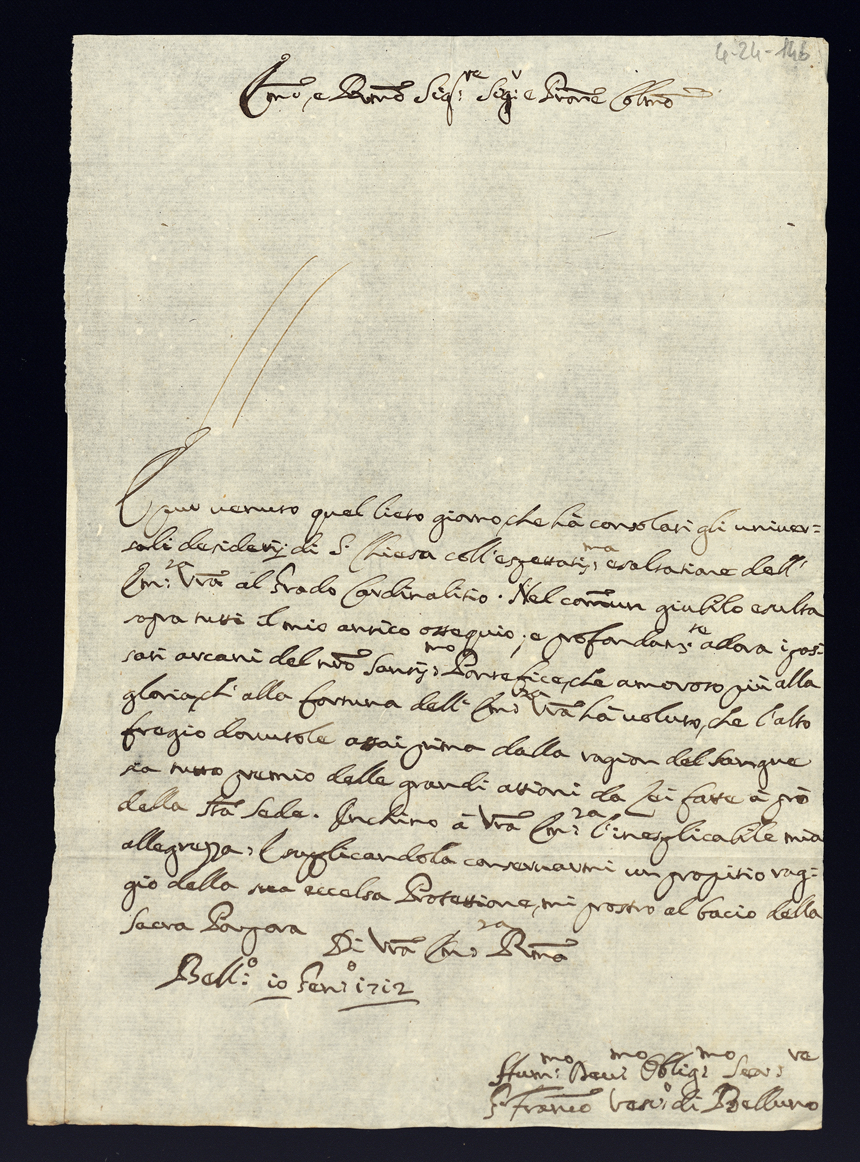 4-24-146
Emo, e Revmo Sig:re Sig:r e Prone Colmo
È pur venuto quel lieto giorno, che hà consolati gli univer=
sali desiderij di S. Chiesa coll'espettatis:ma esaltatione dell'
Em:za Vra al Grado Cardinalitio. Nel comun giubilo esulta
sopra tutti il mio antico ossequio; e profondam:te adora i pas
sati arcani del nro Santiss:mo Pontefice, che amoroso più alla
gloria, ch'alla fortuna dell'Em:za Vra hà voluto, che l'alto
fregio dovutole assai prima dalla ragion del Sangue
sia tutto premio delle grandi attioni da Lei fatte à prò
della Sta Sede. Inchino à Vra Em:za l'inesplicabile mia
allegrezza; e supplicandola conservarmi un propitio rag:
gio della sua eccelsa Protettione, mi prostro al bacio della
Sacra Porpora
Di Vra Em:za Rma
Bell:o 10 Gen:o 1712
Hum:mo Dev:mo Oblig:mo Ser:re
Franco Vesc:o di Belluno